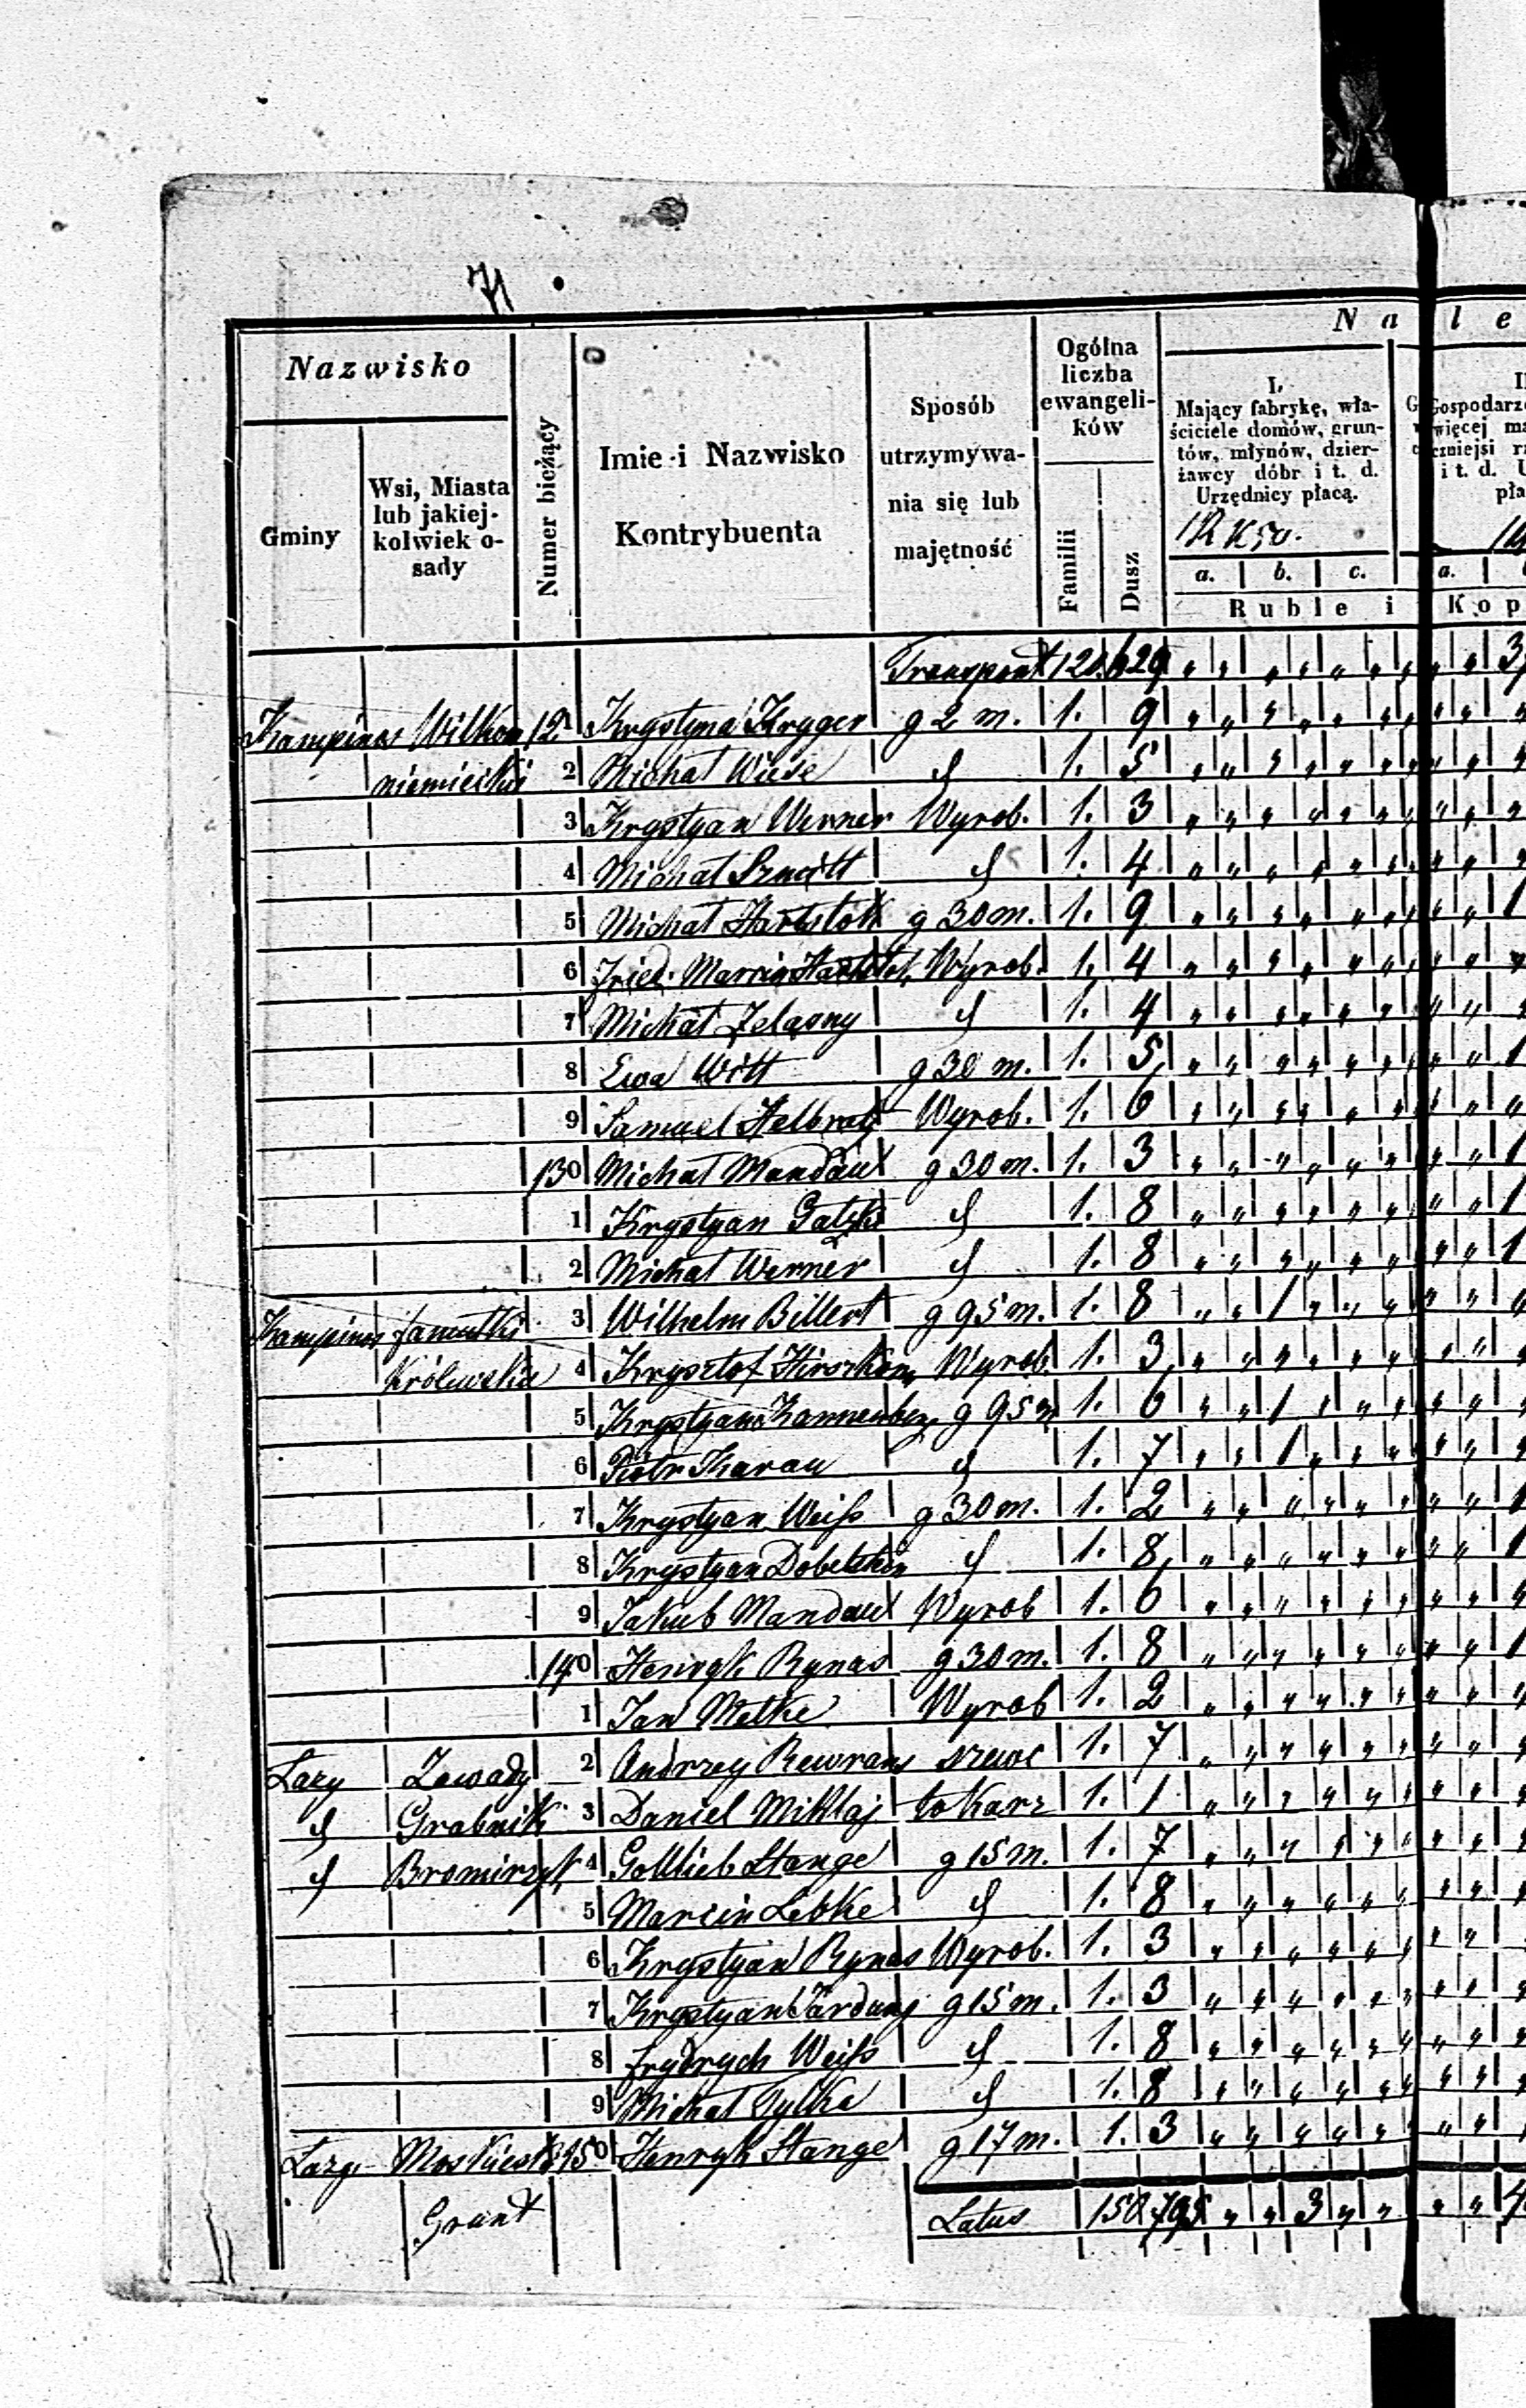 71
Nazwisko
Gminy
Wsi, Miasta
lub jakiej-
kolwiek o-
sady
Numer bieżący
Imie i Nazwisko
Kontrybuenta
Sposób
utrzymywa-
nia się lub
majętność
Ogólna
liczba
ewangeli-
ków
Familii
Dusz
N a l e
I.
Mający fabrykę, wła-
ściciele domów, grun-
tów, młynów, dzier-
żawcy dóbr i t. d.
Urzędnicy płacą.
1R K50.
a. b. c.
a.
Ruble i Kop
Transport 120. 629 " " " " " " " " 3
Kampinos Wilkow 12 Krystyna Krygger g 2 m. 1. 9 " " " " " " " " "
niemiecki 2 Michał Wiese 1. 5 " " " " " " " " "
3 Krystyan Werner Wyrob. 1. 3 " " " " " " " " "
4 Michał 1. 4 " " " " " " " " "
5 Michał g 30 m. 1. 9 " " " " " " " " 1
6 Fried. Marcin Wyrob. 1. 4 " " " " " " " " "
7 Michał Zelasny 1. 4 " " " " " " " " "
8 Ewa Witt g 30 m. 1. 5 " " " " " " " " 1
9 Samuel Wyrob. 1. 6 " " " " " " " " "
130 Michał Mandau g 30 m. 1. 3 " " " " " " " " 1
1 Krystyan 1. 8 " " " " " " " " 1
2 Michał Werner 1. 8 " " " " " " " " 1
Kampinos Famułki 3 Wilhelm Billert g 95 m. 1. 8 " " 1 " " " " " "
Królewskie 4 Krysztof Wyrob. 1. 3 " " " " " " " " "
5 Krystyan Kannenberg g 95 m 1. 6 " " 1 " " " " " "
6 Piotr Tharau 1. 7 " " 1 " " " " " "
7 Krystyan Weiſs g 30 m. 1. 2 " " " " " " " " 1
8 Krystyan 1. 8 " " " " " " " " 1
9 Jakub Mandau Wyrob 1. 6 " " " " " " " " "
140 Henryk Rynas g 30 m. 1. 8 " " " " " " " " 1
1 Jan Metke Wyrob 1. 2 " " " " " " " " "
Lazy Zawady 2 Andrzey szewc 1. 7 " " " " " " " " "
Grabnik 3 Daniel Mikłaj tokarz 1. 1 " " " " " " " " "
4 Gottlieb Stange g 15 m. 1. 7 " " " " " " " " "
5 Marcin Lebke 1. 8 " " " " " " " " "
6 Krystyan Rynas Wyrob. 1. 3 " " " " " " " " "
7 Krystyan g 15 m. 1. 3 " " " " " " " " "
8 Frydrych Weiſs 1. 8 " " " " " " " " "
9 Michał 1. 8 " " " " " " " " "
Lazy 150 Henryk Stange g 17 m. 1. 3 " " " " " " " " "
Latus 150 795 " " 3 " " " " 4